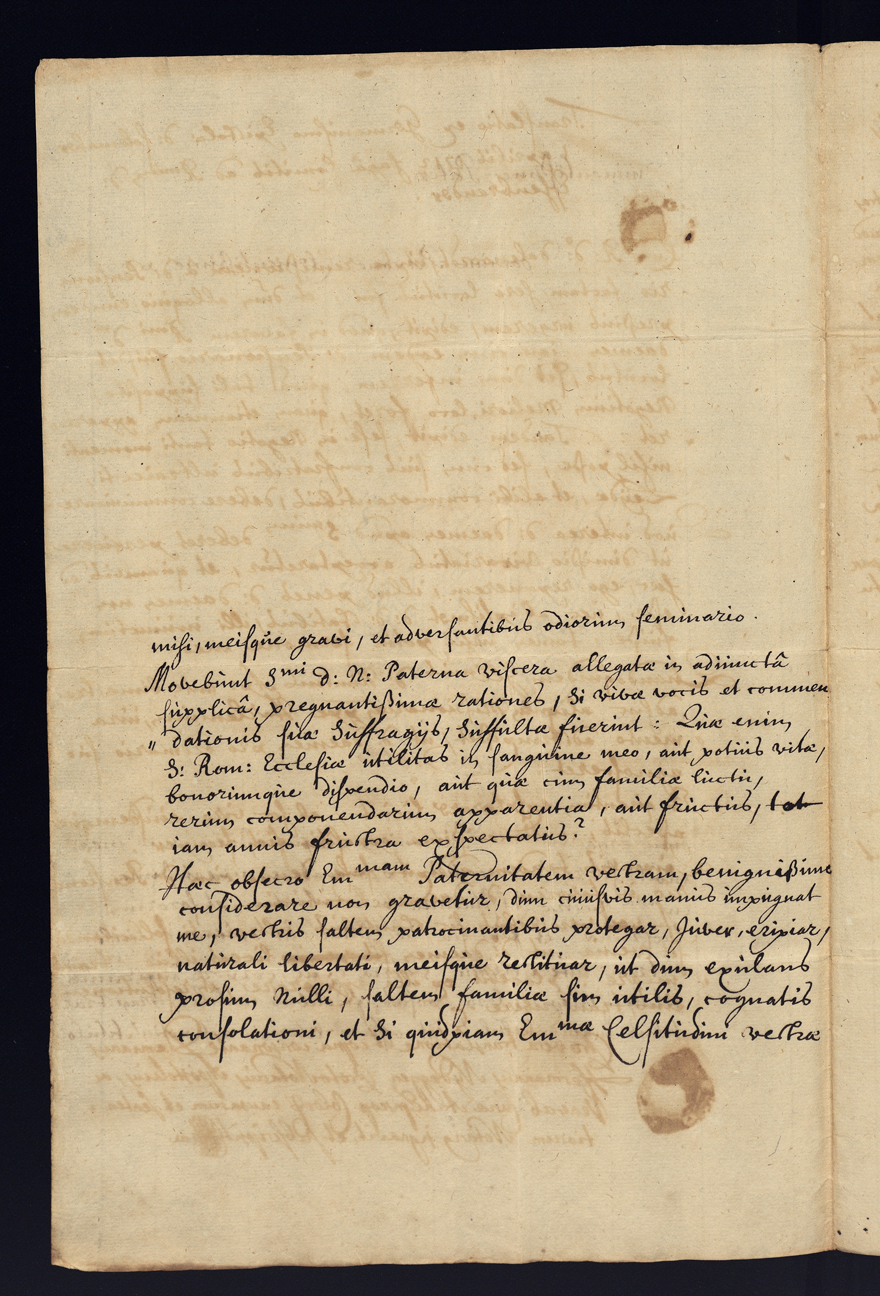 misi, meisque gravi, et adversantibus odiorum seminario.
Movebunt Smi d: N: Paterna viscera allegatæ in adiunctâ
supplicâ, pregnantissimæ rationes, si vivæ vocis et commen
" dationis suæ suffragijs, suffultæ fuerint: Quæ enim
S: Rom: Ecclesiæ utilitas in sanguine meo, aut potius vitæ,
bonorumque dispendio, aut quæ cum familiæ luctu,
rerum componendarum apparentia, aut fructus, tot
iam annis frustra exspectatus?
Hæc obsecro Emmam Paternitatem vestram, benignissime
considerare non gravetur, dum cuiusvis manus impugnat
me, vestris saltem patrocinantibus protegar, Juver, eripiar,
naturali libertati, meisque restituar, ut dum exulans
prosum Nulli, saltem familiæ sim utilis, cognatis
consolationi, et si quidpiam Emmæ Celsitudini vestræ